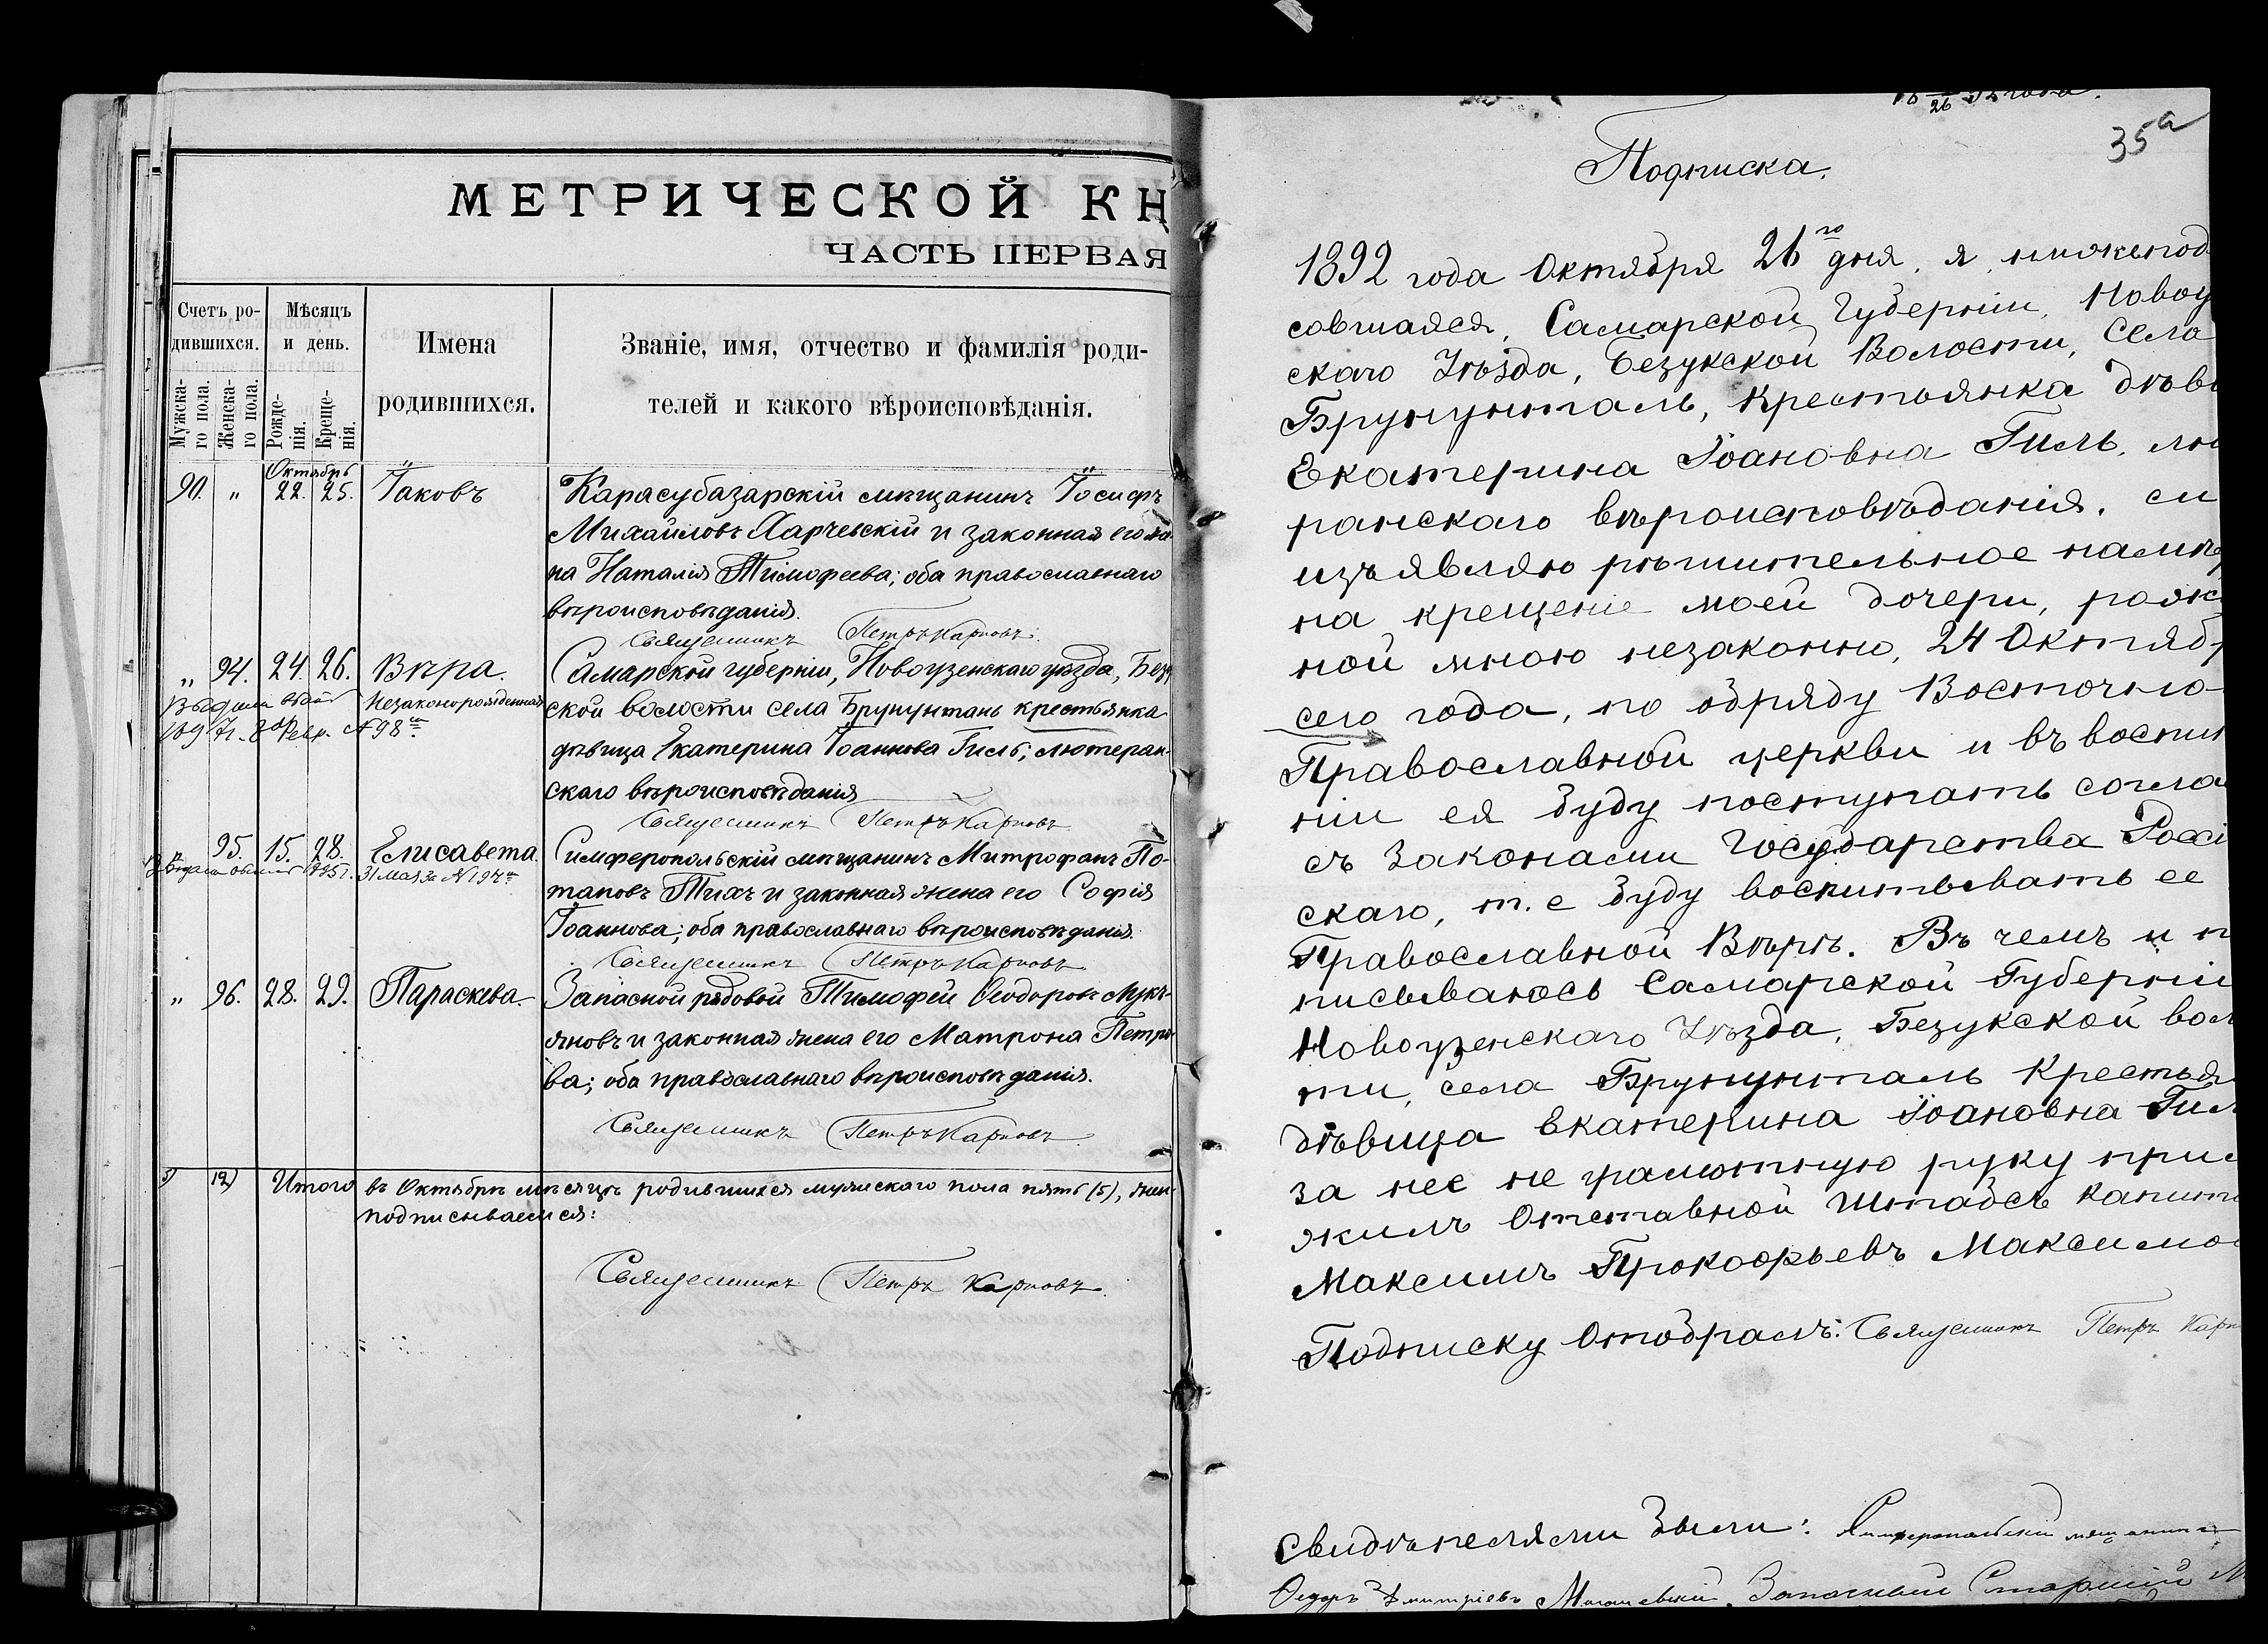 МЕТРИЧЕСКОЙ КН
ЧАСТЬ ПЕРВАЯ
Счетъ ро-
дившихся.
Мѣсяцъ
и день.
Мужска-
го пола.
Женска-
го пола.
Рожде-
нія.
Креще-
нія.
Имена
родившихся.
Званіе, имя, отчество и фамилія роди-
телей и какого вѣроисповѣданія.
Октябрь
90. " 22. 25. Іаковъ Карасубазарскій мѣщанинъ Іосифъ
Михайловъ Харчевскій и законная его же-
на Наталія Тимофеева; оба православнаго
вѣроисповѣданія.
Священникъ Петръ Карповъ.
" 94. 24. 26. Вѣра. Самарской губерніи, Новоузенскаго уѣзда, Без
Незаконорожденная
ской волости села Брунунтань крестьянка
Февр. № 98
дѣвица Екатерина Іоаннова Гиль, лютеран-
скаго вѣроисповѣданія
Священникъ Петръ Карповъ
95. 15. 28. Елисавета. Симферопольскій мѣщанинъ Митрофанъ По-
31 мая за № 194
таповъ Тихъ и законная жена его Софія
Іоаннова; оба православнаго вѣроисповѣданія.
Священникъ Петръ Карповъ
" 96. 28. 29. Параскева. Запасной рядовой Тимофей Ѳеодоровъ Лукь-
яновъ и законная жена его Матрона Петро-
ва; оба православнаго вѣроисповѣданія.
Священникъ Петръ Карповъ
5) 12) Итого въ Октябрѣ мѣсяцѣ родившихся мужескаго пола пять (5), жен-
подписываемся:
Священникъ Петръ Карповъ.
26 92 года.
35а
Подписка.
1892 года Октября 26го дня, я, нижепод
савшаяся, Самарской Губерніи, Новоу
скаго Уѣзда, Безукской Волости, Села
Брунунталь, Крестьянка дѣви
Екатерина Іоановна Гиль, лю
ранскаго вѣроисповѣданія, си
изъявляю рѣшительное намѣр
на крещеніе моей дочери, рож
ной мною незаконно, 24 Октяб
сего года, по обряду Восточно
Православной церкви и въ воспит
ніи ея буду поступать согла
съ Законами Государства Россі
скаго, т. е буду воспитывать ее
Православной Вѣрѣ. Въ чемъ и п
писываюсь Самарской Губерніи
Новоузенскаго Уѣзда, Безукской вол
ти, Села Брунунталь Крестья
дѣвица Екатерина Іоановна Гил
за нее не грамотную руку при
жилъ Отставной Штабсъ Капит
Максимъ Прокофьевъ Максимо
Подписку Отобралъ: Священникъ Петръ Карп
Свидѣтелями Были: Симферопольскій мѣщанинъ
Ѳедоръ Дмитріевъ Запасный Старшій